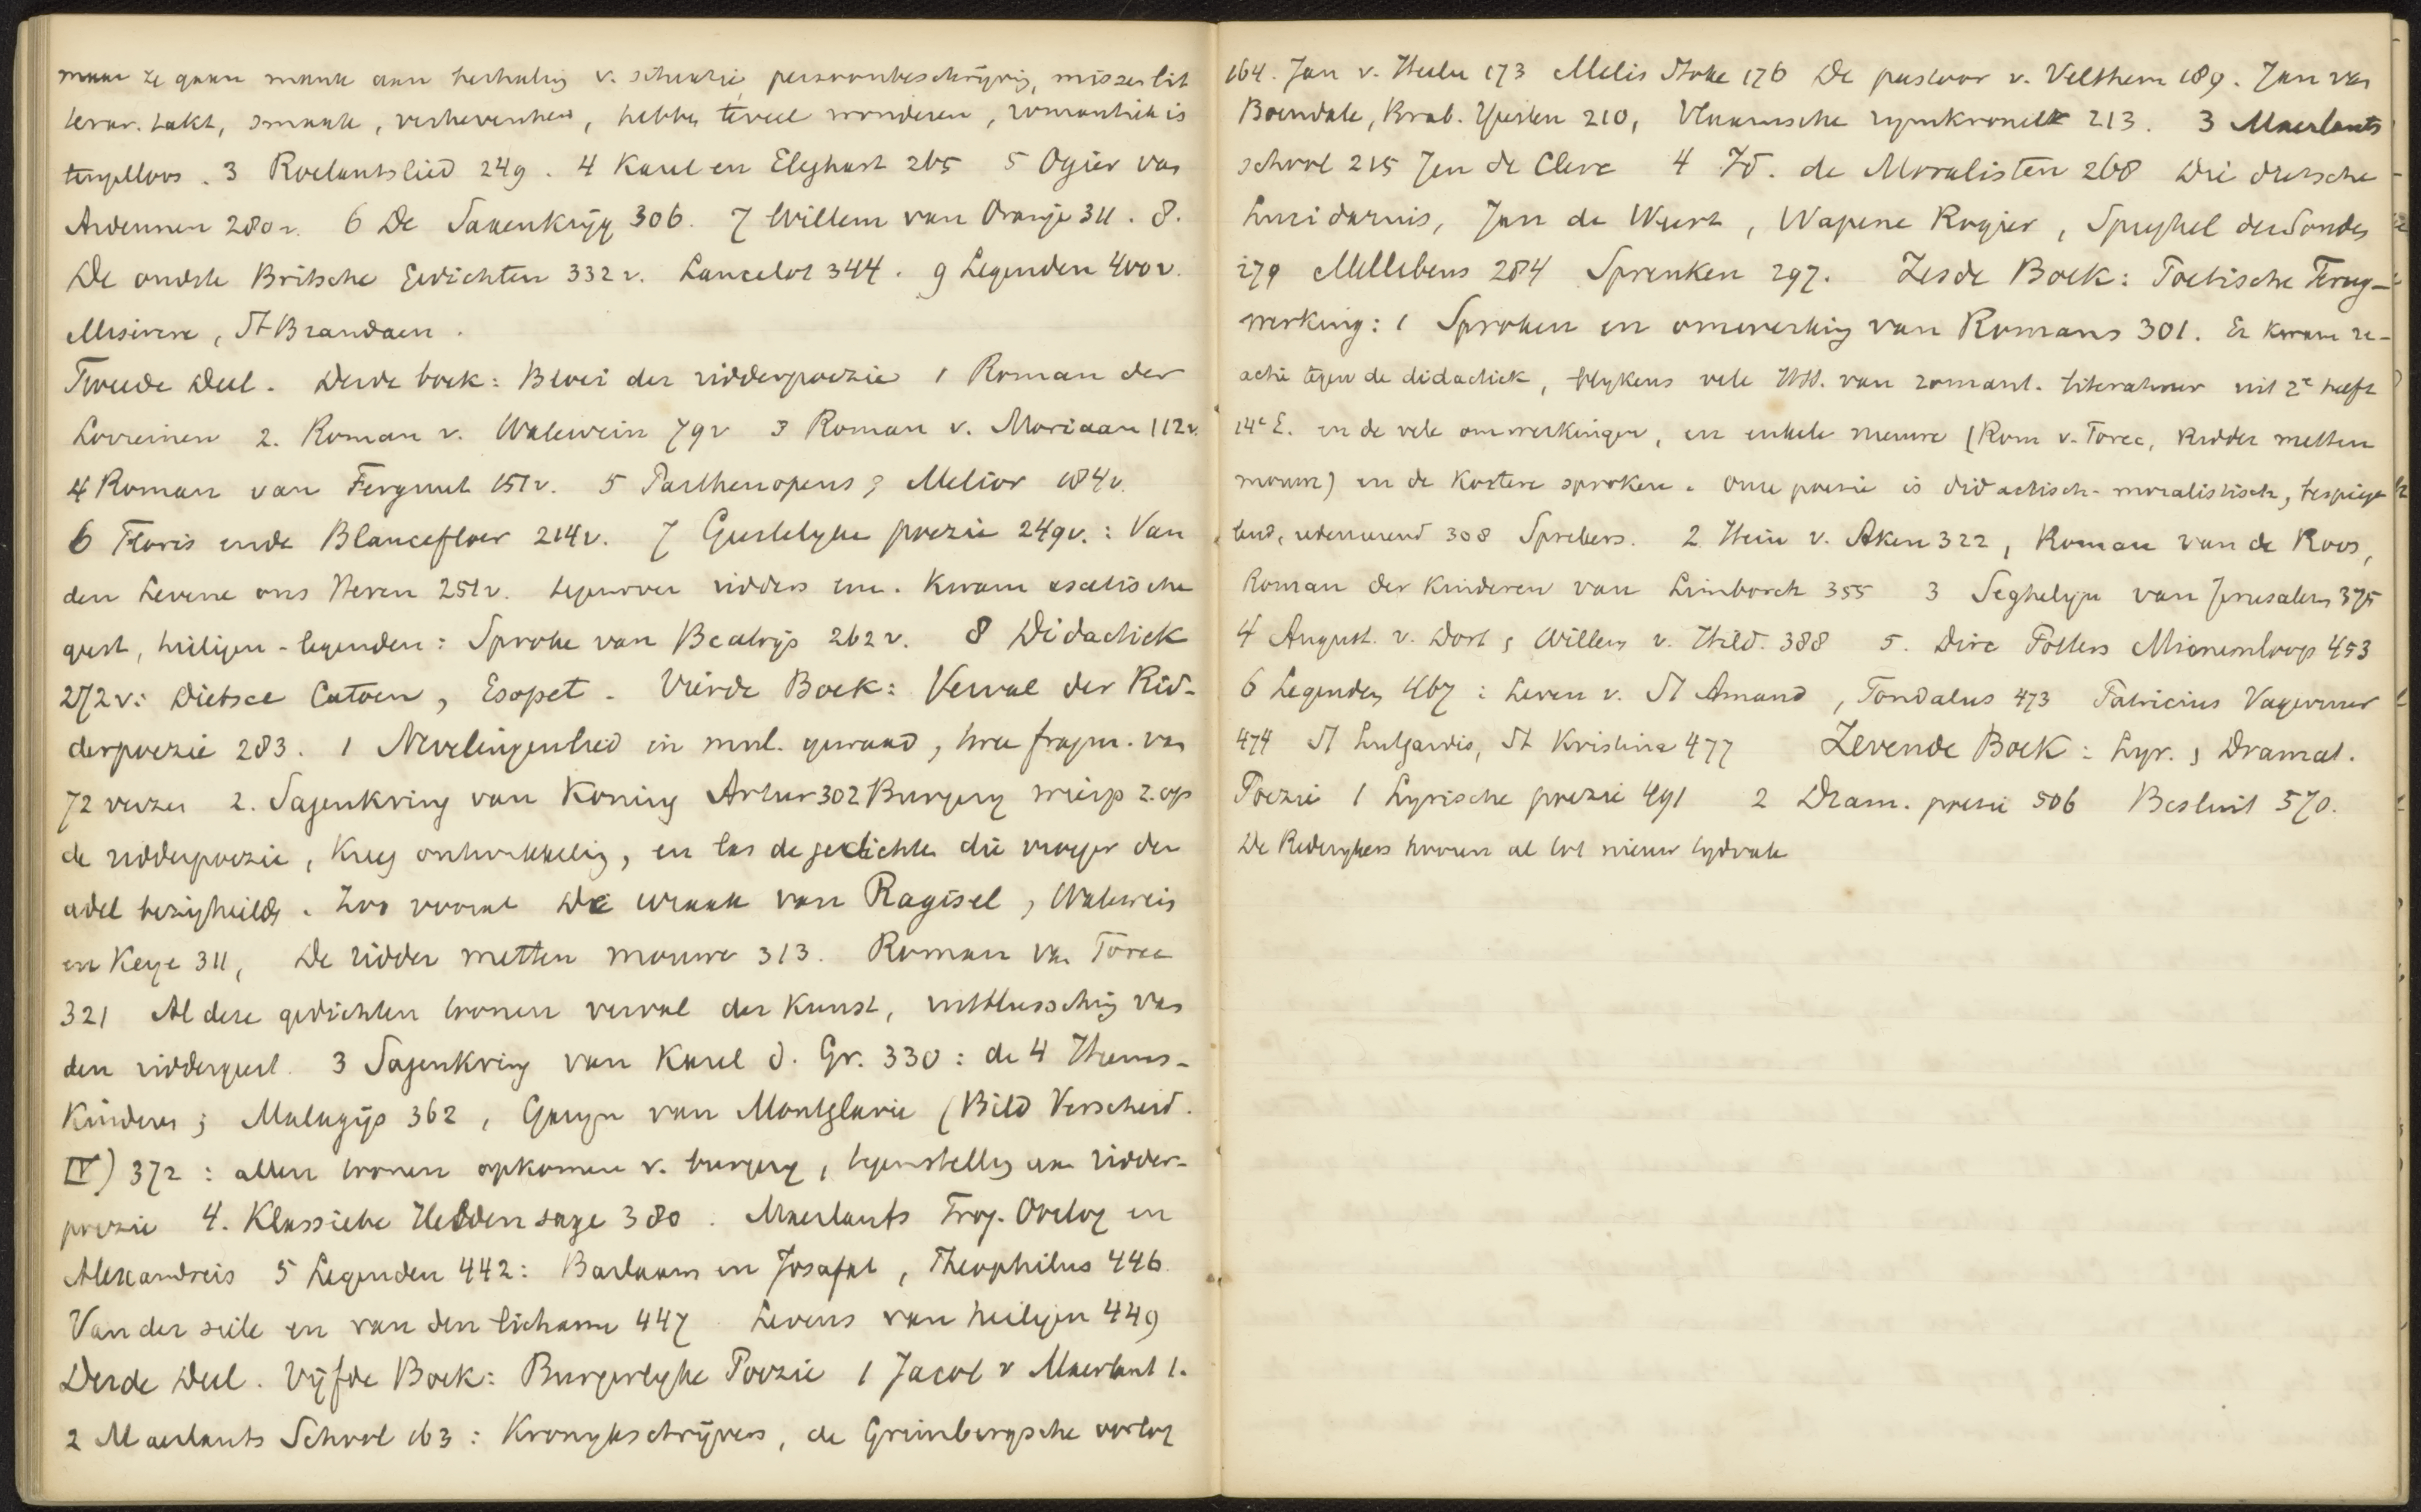 maar ze gaan mank aan herhaling v. situatie, persoonbeschrijving, missen lit
terar. takt, smaak, verhevenheid, hebben teveel wonderen, romantiek is
teugelloos. 3 Roelantslied 249. 4 Karel en Eleghast 265 5 Ogier van
Ardennen 280v. 6 De Saxenkrijg 306. 7 Willem van Oranje 311. 8.
De oudste Britsche Gedichten 332v. Lancelot 344. 9 Legenden 400v.
Miserere, St Brandaen.
Tweede Deel. Derde boek: Bloei der ridderpoezie 1 Roman der
Lorreinen 2. Roman v. Walewein 79v 3 Roman v. Moriaan 112v.
4 Roman van Ferguut 151v. 5 Parthenopeus & Melior 184v.
6 Floris ende Blancefloer 214v. 7 Geestelyke poezie 249v.: Van
den Levene ons Heren 251v. tegenover ridders enz. kwam ascetische
geest, heiligen-legenden: Sproke van Beatrijs 262v. 8 Didactiek
272v: Dietsce Catoen, Esopet. Vierde Boek: Verval der Rid-
derpoezie 283. 1 Nevelingenlied in mnl. gewaad, twee fragm. van
72 verzen 2. Sagenkring van Koning Artur 302 Burgery wierp z. op
de ridderpoezie, kreeg ontwikkeling, en las de gedichten die vroeger den
adel bezighielden. Zoo vooral De wraak van Ragisel, Walewein
en Keye 311, De ridder metten mouwe 313. Roman van Torec
321 Al deze gedichten tonen verval der kunst, uitblussching van
den riddergeest. 3 Sagenkring van Karel d. Gr. 330: de 4 Heems-
kinderen; Malagijs 362, Geryn van Montglavie (Bild Verscheid.
IV) 372: allen tonen opkomen v. burgery, tegenstelling aan ridder-
poezie 4. Klassieke Heldensage 380. Maerlants Troj. Oorlog en
Alexandreis 5 Legenden 442: Barlaam en Josafat, Theophilus 446
Van der siele en van den lichame 447 Levens van heiligen 449
Derde Deel. Vijfde Boek: Burgerlyke Poezie 1 Jacob v Maerlant 1.
2 Maerlants School 163: Kronykschrijvers, de Grimbergsche oorlog
164. Jan v. Heelu 173 Melis Stoke 176 De pastoor v. Velthem 189. Jan van
Boendale, Brab. Yeesten 210, Vlaamsche rymkroniek 213. 3 Maerlants
school 215 Jan de Clerc 4 Id. de Moralisten 268 Die dietsche
Lucidarius, Jan de Weert, Wapene Rogier, Spieghel der Sonden
279 Mellibeus 284 Spreuken 297. Zesde Boek: Poetische Terug-
werking: 1 Sproken en omwerking van Romans 301. Er kwam re-
actie tegen de didactiek, blykens vele HSS. van romant. literatuur uit 2e helft
14e E. en de vele omwerkingen, en enkele nieuwe (Rom v. Torec, Ridder metten
mouwe) en de kortere sproken. Onze poezie is didactisch-moralistisch, bespiege
lend, redenerend 308 Sprekers. 2 Hein v. Aken 322, Roman van de Roos,
Roman der Kinderen van Limborch 355 3 Seghelyn van Jerusalem 375
4 August. v. Dort & Willem v. Hild. 388 5. Dirc Potters Minnenloop 453
6 Legenden 467: Leven v. St Amand, Tondalus 473 Patricius Vagevuur
474 St Lutgardis, St Kristina 477 Zevende Boek: Lyr. & Dramat.
Poezie 1 Lyrische poezie 491 2 Dram. poezie 506 Besluit 570.
De Rederykers hooren al tot nieuw tydvak